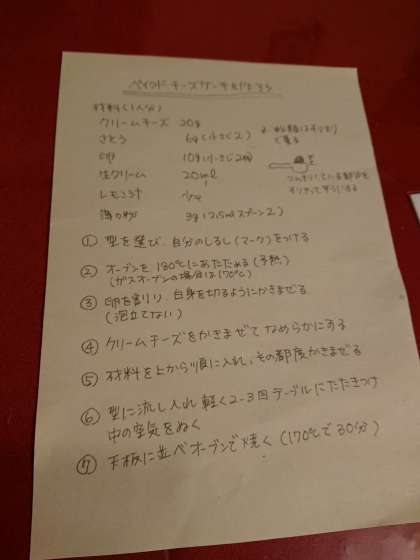 ベイクドチーズケーキを作ろう
材料(1人分)
クリームチーズ 20g
さとう 6g(小さじ2)
卵 10g(小さじ2杯)
生クリーム 20ml
レモン汁 少々
薄力粉 3g(2.5mlスプーン2)
※粉類はすりきりで量る
すりきって平らにする
① 型を選び、自分のしるし(マーク)をつける
② オーブンを180℃にあたためる(予熱)
(ガスオーブンの場合は170℃)
③ 卵を割り、白身を切るようにかきまぜる
(泡立てない)
④ クリームチーズをかきまぜてなめらかにする
⑤ 材料を上から順に入れ、その都度かきまぜる
⑥ 型に流し入れ 軽く2-3回テーブルにたたきつけ
中の空気をぬく
⑦ 天板に並べオーブンで焼く(170℃で30分)